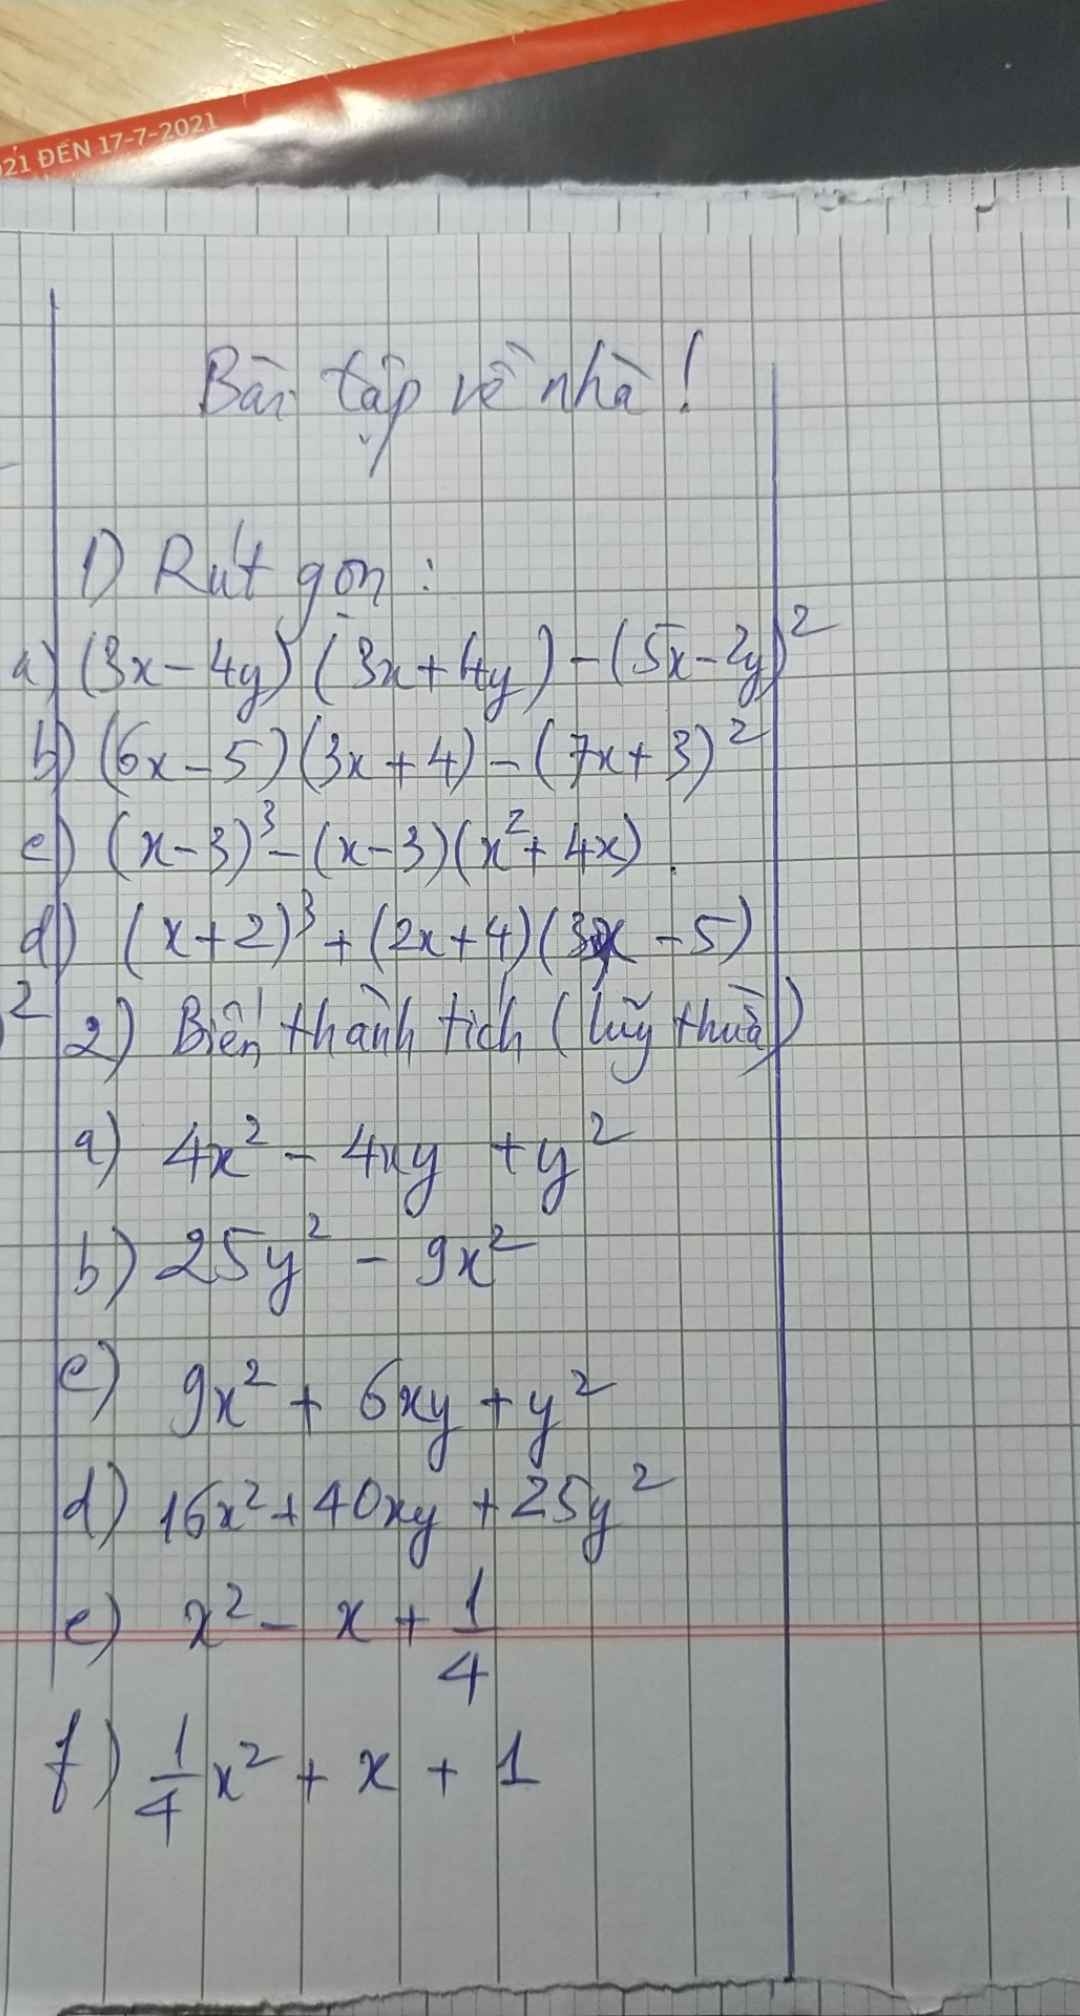 021 ĐẾN 17-7-2021
Bài tập về nhà !
1) Rút gọn :
a) (3x - 4y) (3x + 4y) - (5x - 2y)²
b) (6x - 5)(3x + 4) - (7x + 3)²
c) (x - 3)³ - (x - 3)(x² + 4x)
d) (x + 2)³ + (2x + 4)(3x - 5)
2
2) Biến thành tích (lũy thừa)
a) 4x² - 4xy + y²
b) 25y² - 9x²
c) 9x² + 6xy + y²
d) 16x² + 40xy + 25y²
e) x² - x + 1/4
f) 1/4 x² + x + 1